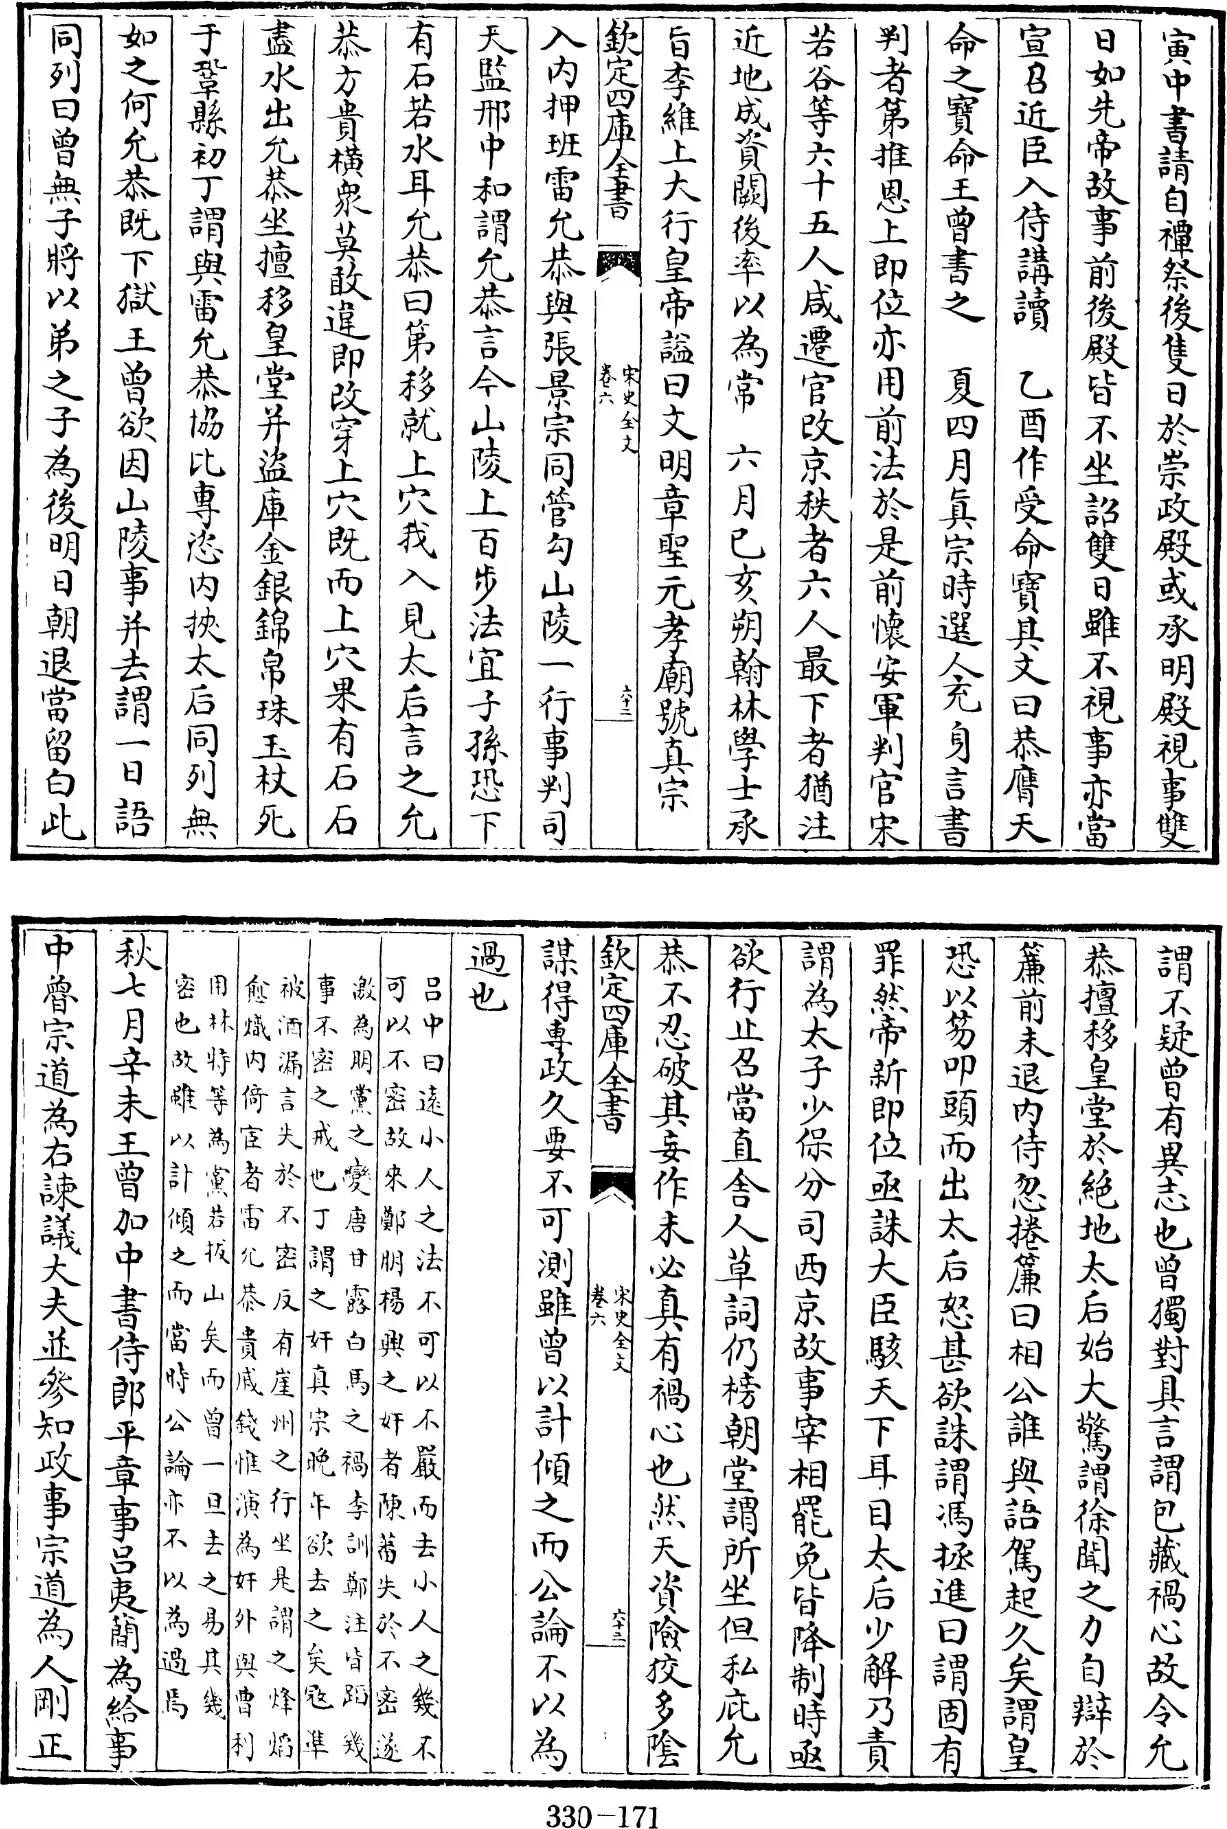 寅中書請自禫祭後隻日於崇政殿或承明殿視事雙
日如先帝故事前後殿皆不坐詔雙日雖不視事亦當
宣召近臣入侍講讀　乙酉作受命寶其文曰恭膺天
命之寶命王曾書之　夏四月真宗時選人充身言書
判者第推恩上即位亦用前法於是前懷安軍判官宋
若谷等六十五人咸遷官改京秩者六人最下者猶注
近地成資闕後率以為常　六月己亥朔翰林學士承
旨李維上大行皇帝諡曰文明章聖元孝廟號真宗
欽定四庫全書
宋史全文
卷六
六十二
入內押班雷允恭與張景宗同管勾山陵一行事判司
天監邢中和謂允恭言今山陵上百步法宜子孫恐下
有石若水耳允恭曰第移就上穴我入見太后言之允
恭方貴橫衆莫敢違即改穿上穴既而上穴果有石石
盡水出允恭坐擅移皇堂并盜庫金銀錦帛珠玉杖死
于鞏縣初丁謂與雷允恭協比專恣內挾太后同列無
如之何允恭既下獄王曾欲因山陵事并去謂一日語
同列曰曾無子將以弟之子為後明日朝退當留白此
謂不疑曾有異志也曾獨對具言謂包藏禍心故令允
恭擅移皇堂於絕地太后始大驚謂徐聞之力自辯於
簾前未退內侍忽捲簾曰相公誰與語駕起久矣謂皇
恐以笏叩頭而出太后怒甚欲誅謂馮拯進曰謂固有
罪然帝新即位亟誅大臣駭天下耳目太后少解乃責
謂為太子少保分司西京故事宰相罷免皆降制時亟
欲行止召當直舍人草詞仍榜朝堂謂所坐但私庇允
恭不忍破其妄作未必真有禍心也然天資險狡多陰
欽定四庫全書
宋史全文
卷六
六十二
謀得專政久要不可測雖曾以計傾之而公論不以為
過也
呂中曰遠小人之法不可以不嚴而去小人之幾不
可以不密故來鄭朋楊興之奸者陳蕃失於不密遂
激為朋黨之變唐甘露白馬之禍李訓鄭注皆蹈幾
事不密之戒也丁謂之奸真宗晚年欲去之矣寇準
被酒漏言失於不密反有崖州之行坐是謂之烽焰
愈熾內倚宦者雷允恭貴戚錢惟演為奸外與曹利
用林特等為黨若拔山矣而曾一旦去之易其幾
密也故雖以計傾之而當時公論亦不以為過焉
秋七月辛未王曾加中書侍郎平章事呂夷簡為給事
中魯宗道為右諫議大夫並參知政事宗道為人剛正
330-171